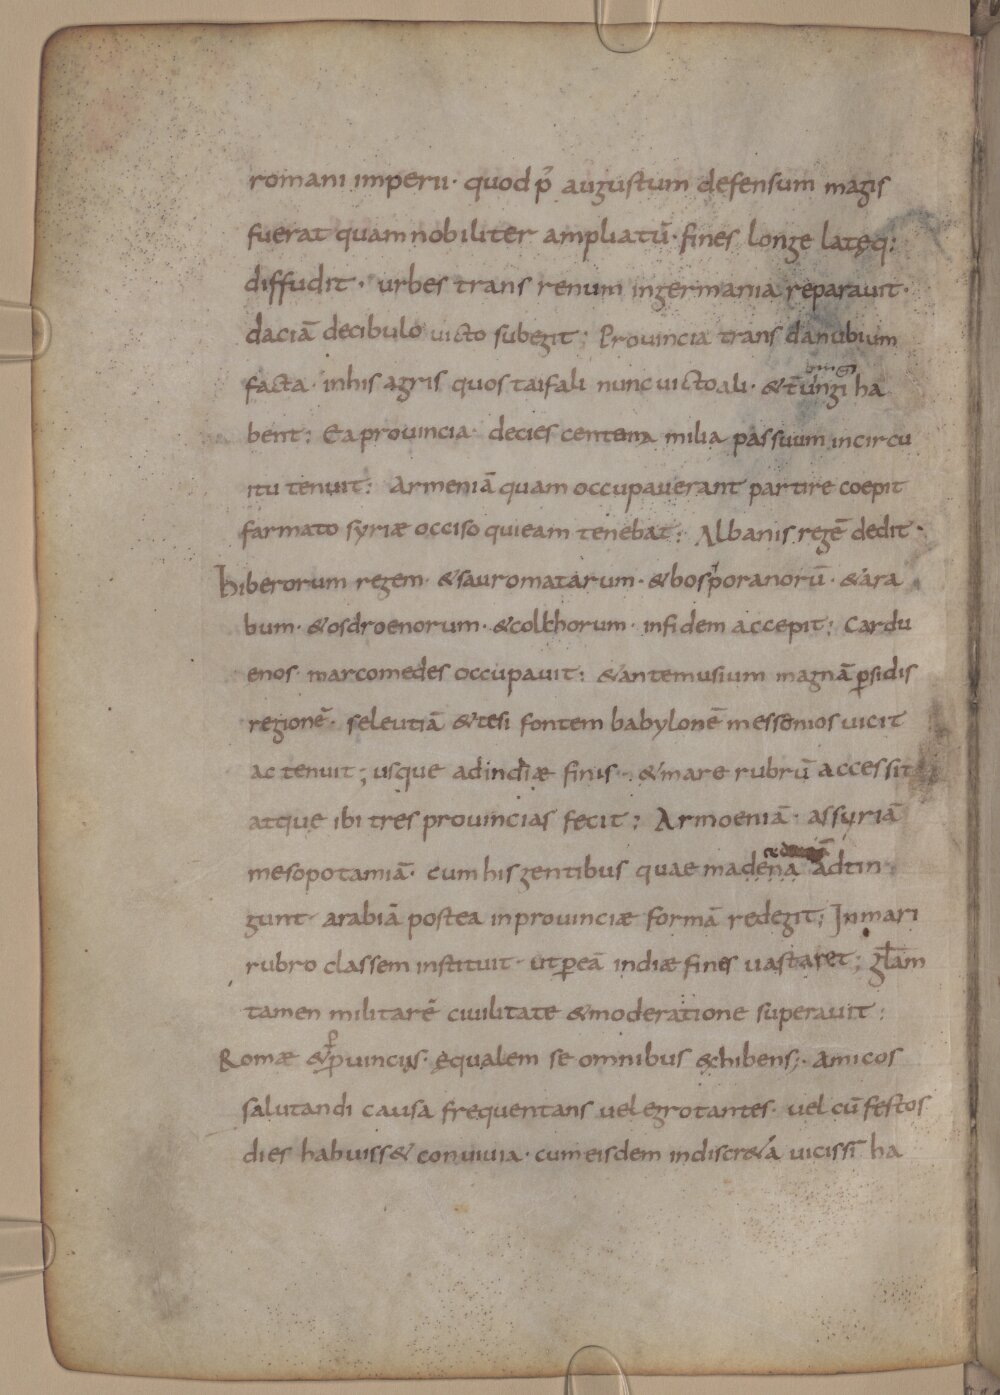 romani imperii· quod p̄ augustum defensum magis
fuerat quam nobiliter ampliatū· fines longe lateq:
diffudit· urbes trans renum ingermania reparauit·
daciā decibulo uicto subegit; Prouincia trans danubium
facta· inhis agris quos taifali nunc uictoali· & tūngi ha
bent: Ea prouincia· decies centena milia passuum incircu
itu tenuit: Armeniā quam occupauerant partire coepit
farmato syriæ occiso quieam tenebat: Albanis regē dedit·
hiberorum regem· &sauromatarum· &bosporanorū· &ara
bum· &osdroenorum· &colchorum· infidem accepit; Cardu
enos· marcomedes occupauit: &antemusium magnā ꝑsidis
regionē· seleutiā &tesi fontem babylonē messenios uicit
ac tenuit; usque adindiæ finis·. &mare rubrū accessit
atque ibi tres prouincias fecit: Armoeniā· assyriā
mesopotamiā· cum his gentibus quae madenā adtin
gunt· arabiā postea inprouinciæ formā redegit; Inmari
rubro classem instituit· ut ꝑeā indiæ fines uastaret; glām
tamen militarē ciuilitate &moderatione superauit:
Romæ &ꝓuinciis· equalem se omnibus &hibens;· Amicos
salutandi causa frequentans uel egrotantes· uel cū festos
dies habuiss& conuiuia· cum eisdem indiscr&a uicissī ha